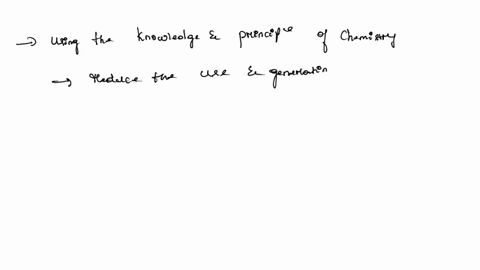 → Using the knowledge & principle of Chemistry
→ Reduce the use & generatin